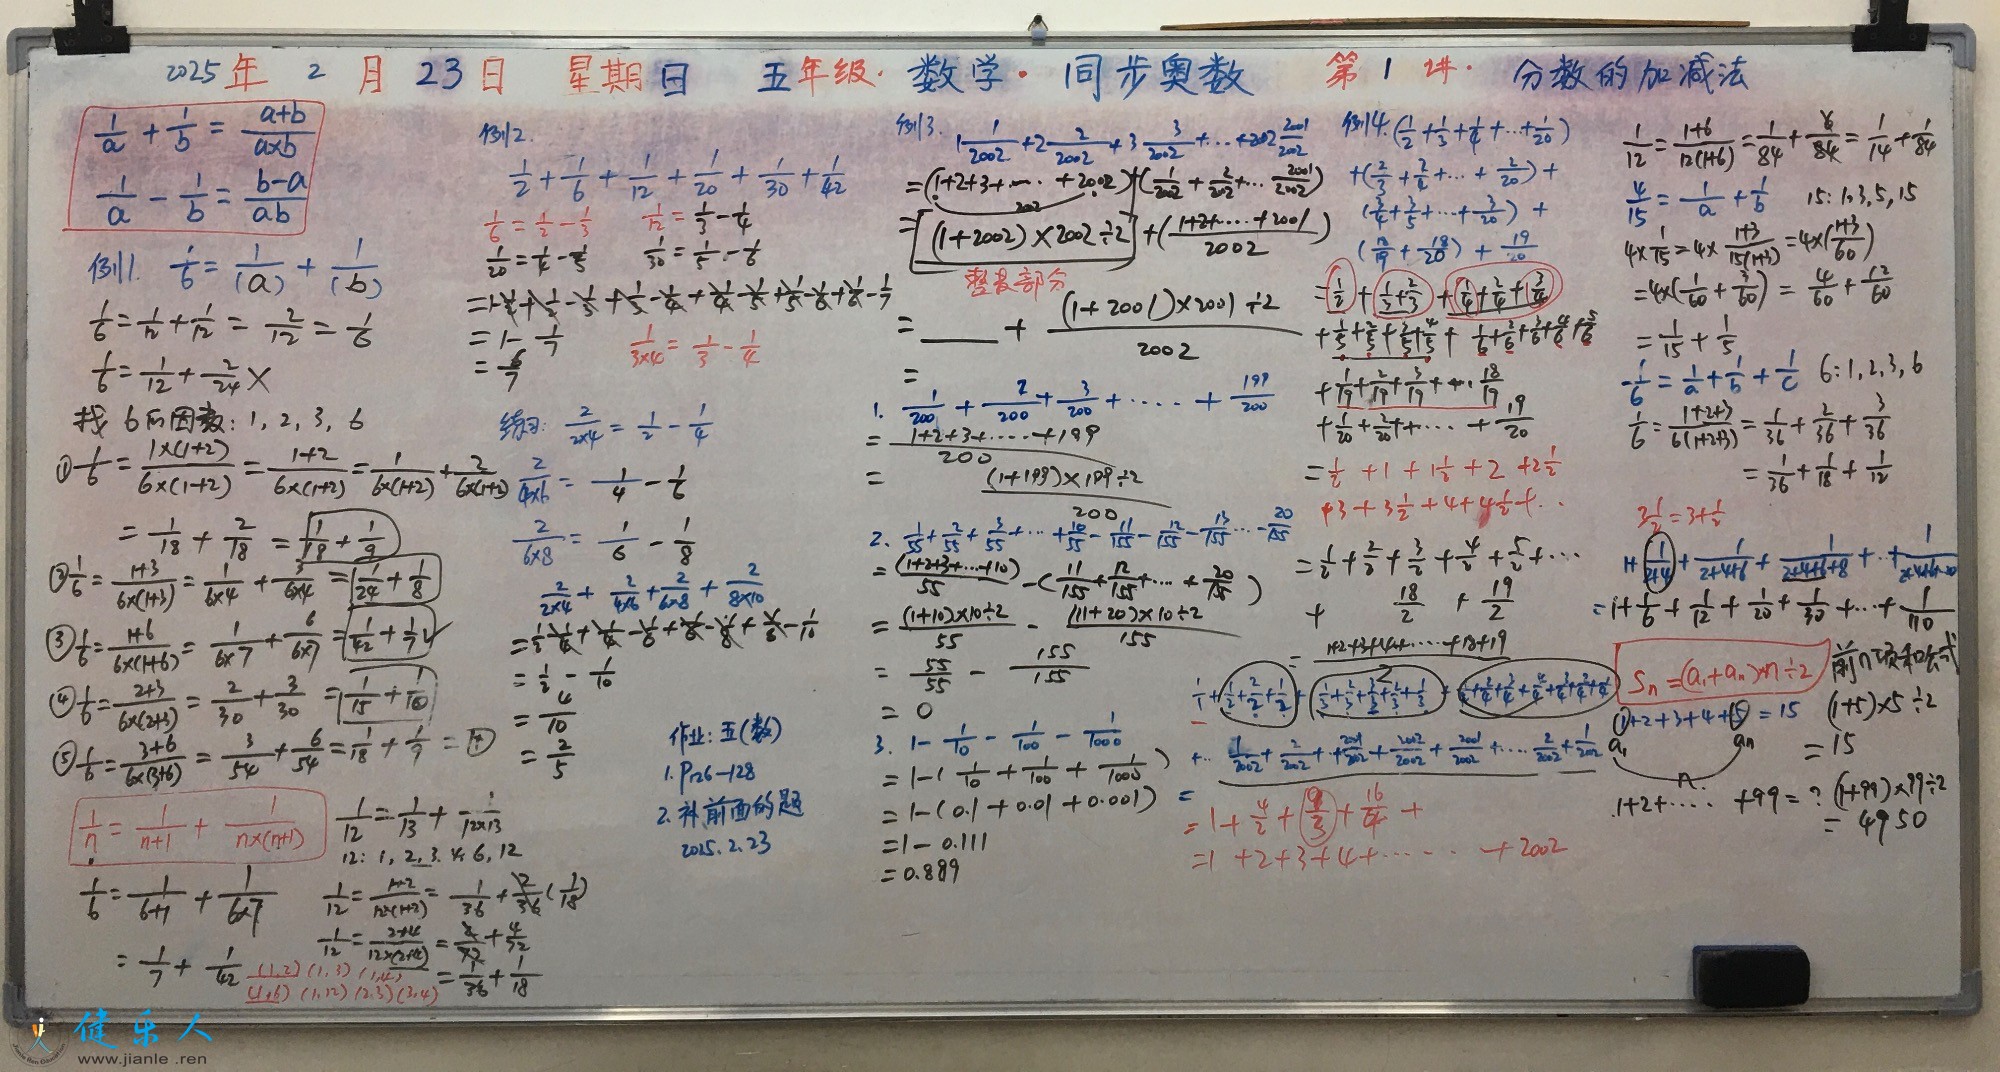 2025年 2月23日 星期日 五年级·数学·同步奥数 第1讲·分数的加减法
1/a + 1/b = (a+b)/(a×b)
1/a - 1/b = (b-a)/(ab)
例1. 1/6 = 1/(a) + 1/(b)
1/6 = 1/12 + 1/12 = 2/12 = 1/6
1/6 = 1/12 + 2/24 ×
找6的因数: 1, 2, 3, 6
① 1/6 = 1×(1+2)/6×(1+2) = (1+2)/6×(1+2) = 1/6×(1+2) + 2/6×(1+2)
= 1/18 + 2/18 = 1/18 + 1/9
② 1/6 = (1+3)/6×(1+3) = 1/6×4 + 3/6×4 = 1/24 + 1/8
③ 1/6 = (1+6)/6×(1+6) = 1/6×7 + 6/6×7 = 1/42 + 1/7 ✓
④ 1/6 = (2+3)/6×(2+3) = 2/30 + 3/30 = 1/15 + 1/10
⑤ 1/6 = (3+6)/6×(3+6) = 3/54 + 6/54 = 1/18 + 1/9 =
1/n = 1/(n+1) + 1/n×(n+1)
1/6 = 1/(6+1) + 1/6×7
= 1/7 + 1/42
1/12 = 1/13 + 1/12×13
12: 1, 2, 3, 4, 6, 12
1/12 = (1+2)/12×(1+2) = 1/36 + 2/36 (1/18)
1/12 = (2+4)/12×(2+4) = 2/72 + 4/72
= 1/36 + 1/18
(1,2) (1,3) (1,4)
(1,6) (1,12) (2,3) (3,4)
例2.
1/2 + 1/6 + 1/12 + 1/20 + 1/30 + 1/42
1/6 = 1/2 - 1/3 1/12 = 1/3 - 1/4
1/20 = 1/4 - 1/5 1/30 = 1/5 - 1/6
= 1 - 1/2 + 1/2 - 1/3 + 1/3 - 1/4 + 1/4 - 1/5 + 1/5 - 1/6 + 1/6 - 1/7
= 1 - 1/7
= 6/7
1/3×4 = 1/3 - 1/4
练习: 2/2×4 = 1/2 - 1/4
2/4×6 = 1/4 - 1/6
2/6×8 = 1/6 - 1/8
2/2×4 + 2/4×6 + 2/6×8 + 2/8×10
= 1/2 - 1/4 + 1/4 - 1/6 + 1/6 - 1/8 + 1/8 - 1/10
= 1/2 - 1/10
= 4/10
= 2/5
作业: 五(数)
1. P126-128
2. 补前面的题
2025.2.23
例3. 1 1/2002 + 2 2/2002 + 3 3/2002 + … + 2002 2001/2002
= (1+2+3+…+2002)+(1/2002 + 2/2002 + … 2001/2002)
= (1+2002)×2002÷2 + (1+2+……+2001 / 2002)
整数部分
= ___ + (1+2001)×2001÷2 / 2002
=
1. 1/200 + 2/200 + 3/200 + …… + 199/200
= 1+2+3+……+199 / 200
= (1+199)×199÷2 / 200
2. 1/55 + 2/55 + 3/55 + … + 10/55 - 11/155 - 12/155 - 13/155 … - 20/155
= (1+2+3+…+10)/55 - (11/155 + 12/155 + … + 20/155)
= (1+10)×10÷2 / 55 - (11+20)×10÷2 / 155
= 55/55 - 155/155
= 0
3. 1 - 1/10 - 1/100 - 1/1000
= 1-(1/10 + 1/100 + 1/1000)
= 1-(0.1+0.01+0.001)
= 1 - 0.111
= 0.889
例4. (1/2 + 1/3 + 1/4 + … + 1/20)
+(2/3 + 2/4 + … + 2/20) +
(3/4 + 3/5 + … + 3/20) +
(18/19 + 18/20) + 19/20
= 1/2 + 1/3 + 2/3 + 1/4 + 2/4 + 3/4
+ 1/5 + 2/5 + 3/5 + 4/5 + 1/6 + 2/6 + 3/6 + 4/6 + 5/6
+ 1/19 + 2/19 + 3/19 + … 18/19
+ 1/20 + 2/20 + … + 19/20
= 1/2 + 1 + 1 1/2 + 2 + 2 1/2
+ 3 + 3 1/2 + 4 + 4 1/2 + …
= 1/2 + 2/2 + 3/2 + 4/2 + 5/2 + …
+ 18/2 + 19/2
= 1+2+3+4+……+18+19 / 2
+… 1/2002 + 2/2002 + … + 2001/2002 + 2002/2002 + 2001/2002 + … 2/2002 + 1/2002
=
= 1 + 4/2 + 9/3 + 16/4 +
= 1+2+3+4+…… + 2002
1/12 = (1+6)/12(1+6) = 1/84 + 6/84 = 1/14 + 1/84
4/15 = 1/a + 1/b 15: 1, 3, 5, 15
4×1/15 = 4×(1+3)/15(1+3) = 4×(1+3 / 60)
= 4×(1/60 + 3/60) = 4/60 + 12/60
= 1/15 + 1/5
1/6 = 1/a + 1/b + 1/c 6: 1, 2, 3, 6
1/6 = (1+2+3)/6(1+2+3) = 1/36 + 2/36 + 3/36
= 1/36 + 1/18 + 1/12
3 1/2 = 3 + 1/2
1+ 1/(2+4) + 1/(2+4+6) + 1/(2+4+6+8) + … + 1/(2+4+6…20)
= 1 + 1/6 + 1/12 + 1/20 + 1/30 + … + 1/110
Sn = (a1+an)×n÷2 前n项和公式
1+2+3+4+5 = 15 (1+5)×5÷2
a1 an = 15
n
1+2+…… +99 = ? (1+99)×99÷2
= 4950
健乐人
www.jianle.ren